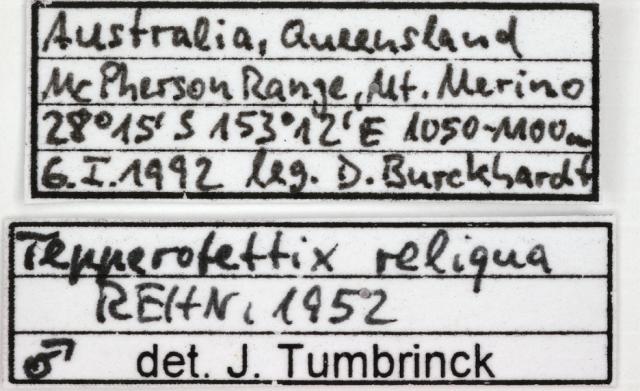 Australia, Queensland
McPherson Range, Mt. Merino
28°15' S 153°12' E 1050-1100m
6.I.1992 leg. D. Burckhardt
Tepperotettix reliqua
REHN, 1952
♂ det. J. Tumbrinck